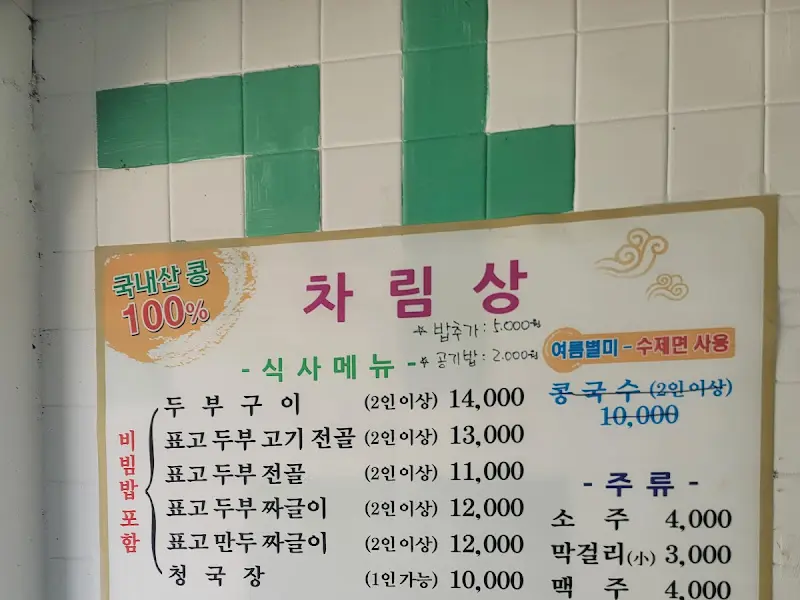 국내산 콩
100%
차림상
* 밥추가 : 5.000원
* 공기밥 : 2.000원
- 식사메뉴 -
비빔밥 포함
두부구이 (2인이상) 14,000
표고두부 고기 전골 (2인이상) 13,000
표고두부 전골 (2인이상) 11,000
표고두부 짜글이 (2인이상) 12,000
표고만두 짜글이 (2인이상) 12,000
청국장 (1인가능) 10,000
여름별미 - 수제면 사용
콩국수 (2인이상)
10,000
- 주류 -
소주 4,000
막걸리(小) 3,000
맥주 4,000